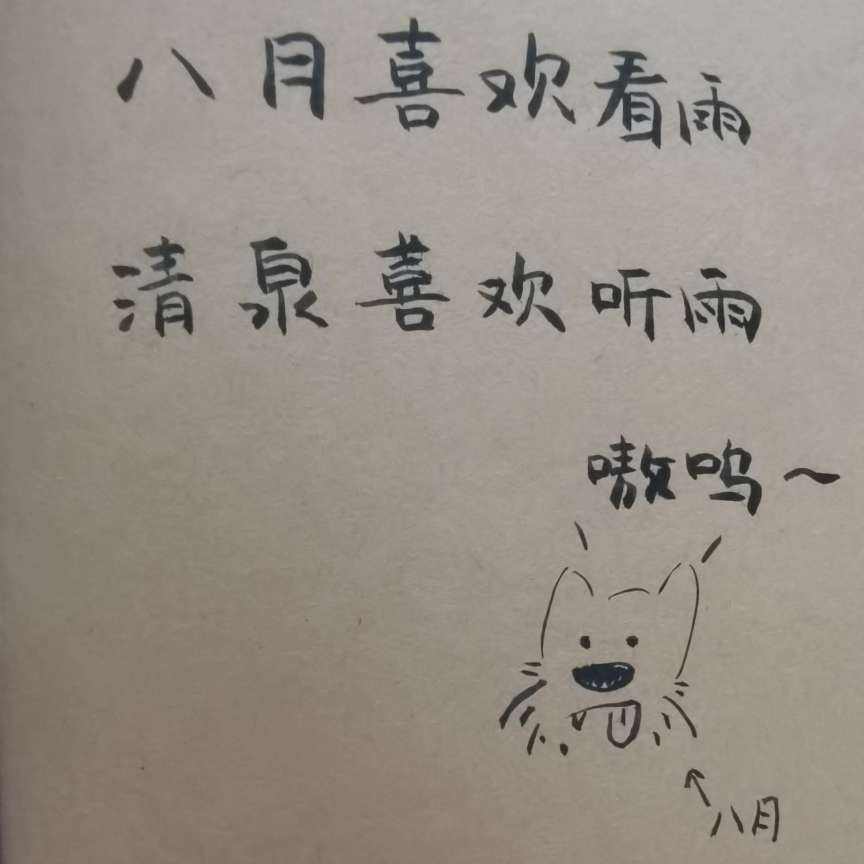 八月喜欢看雨
清泉喜欢听雨
嗷呜～
八月